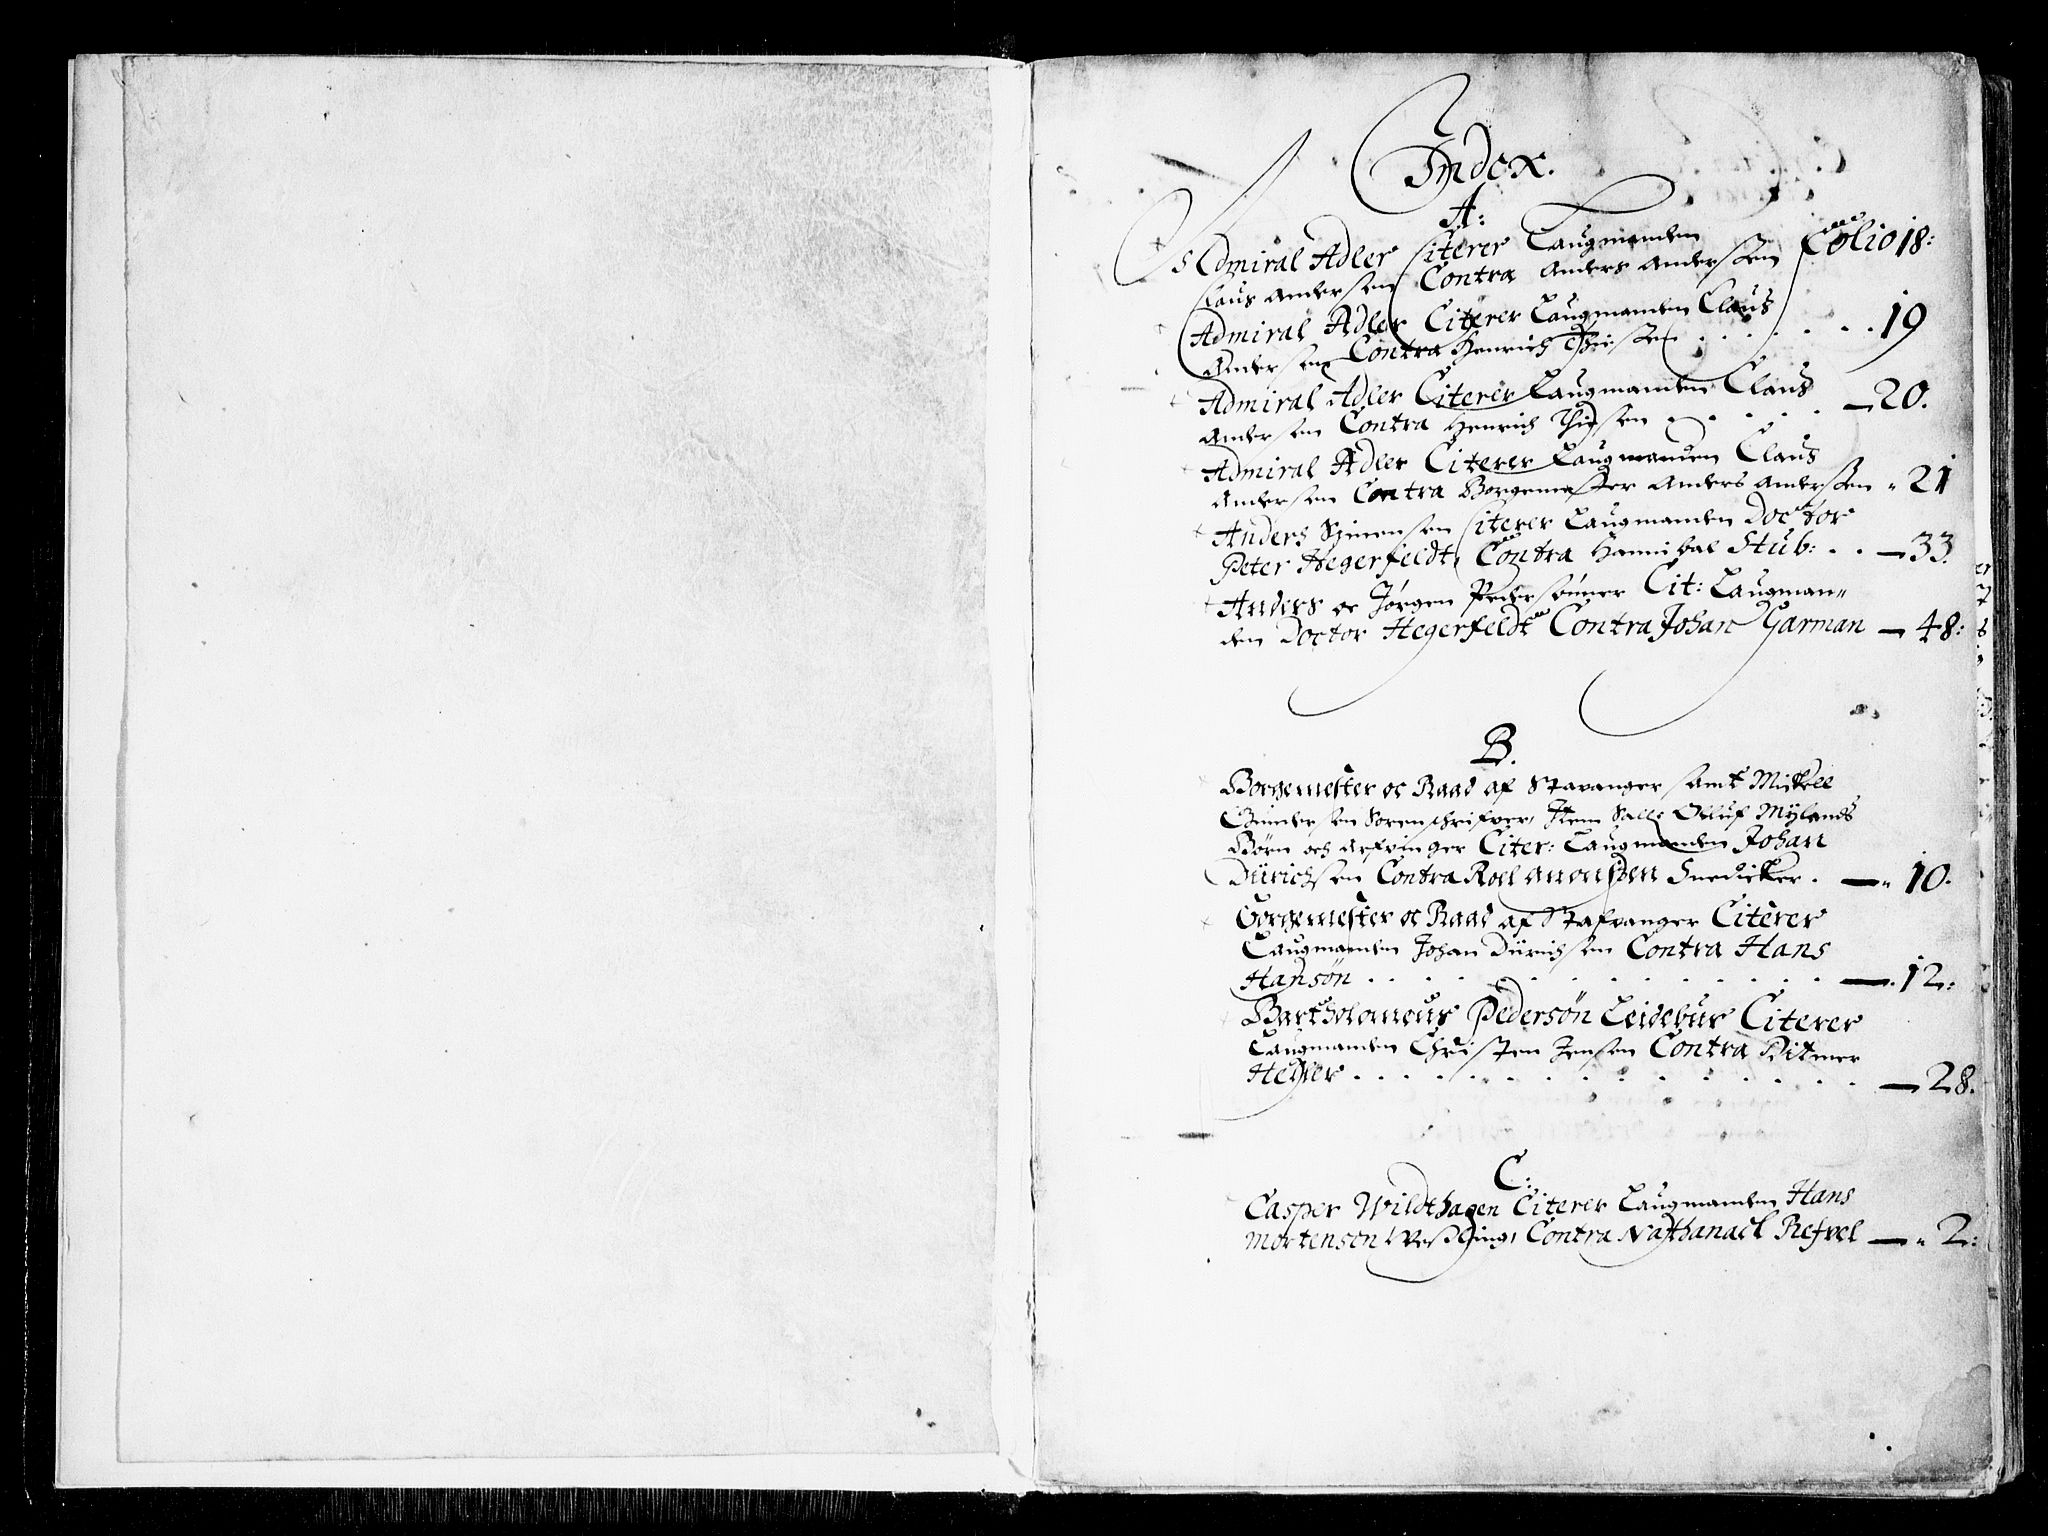 Index.
A:
Admiral Adler Citerer Laugmanden
Claus Andersen Contra Anders Anderssen Folio 18:
Admiral Adler Citerer Laugmanden Claus
Andersen Contra Henrich Thiessen . . . . . . . 19
Admiral Adler Citerer Laugmanden Claus
Andersen Contra Henrich Thijsen . . . . . — 20.
Admiral Adler Citerer Laugmanden Claus
Andersen Contra Borgemester Anders Anderssen " 21
Anders Simensen Citerer Laugmanden Doctor
Peter Hegerfeldt, Contra Hannibal Stub: . . — 33.
Anders oc Jørgen Pedersönner Cit: Laugman"
den Doctor Hegerfeldt Contra Johan Garman — 48:
B.
Borgemester oc Raad af Stavanger samt Mickell
Gundersen Sorenschrifver, Item Sall: Olluf Mÿlands
Børn och Arfvinger Citer: Laugmanden Johan
Dürichsen Contra Roel Snedicker . — " 10.
Borgemester oc Raad af Stafvanger Citerer
Laugmanden Johan Dürichsen Contra Hans
Hansön . . . . . . . . . . . . . . —. 12:
Bartholomeus Pedersön Leidebur Citerer
Laugmanden Christen Jensen Contra Ditmer
Hegler . . . . . . . . . . . . . . — 28.
C:
Casper Wildthagen Citerer Laugmanden Hans
Mortenson Wessling, Contra Nathanael Refvel — " 2: